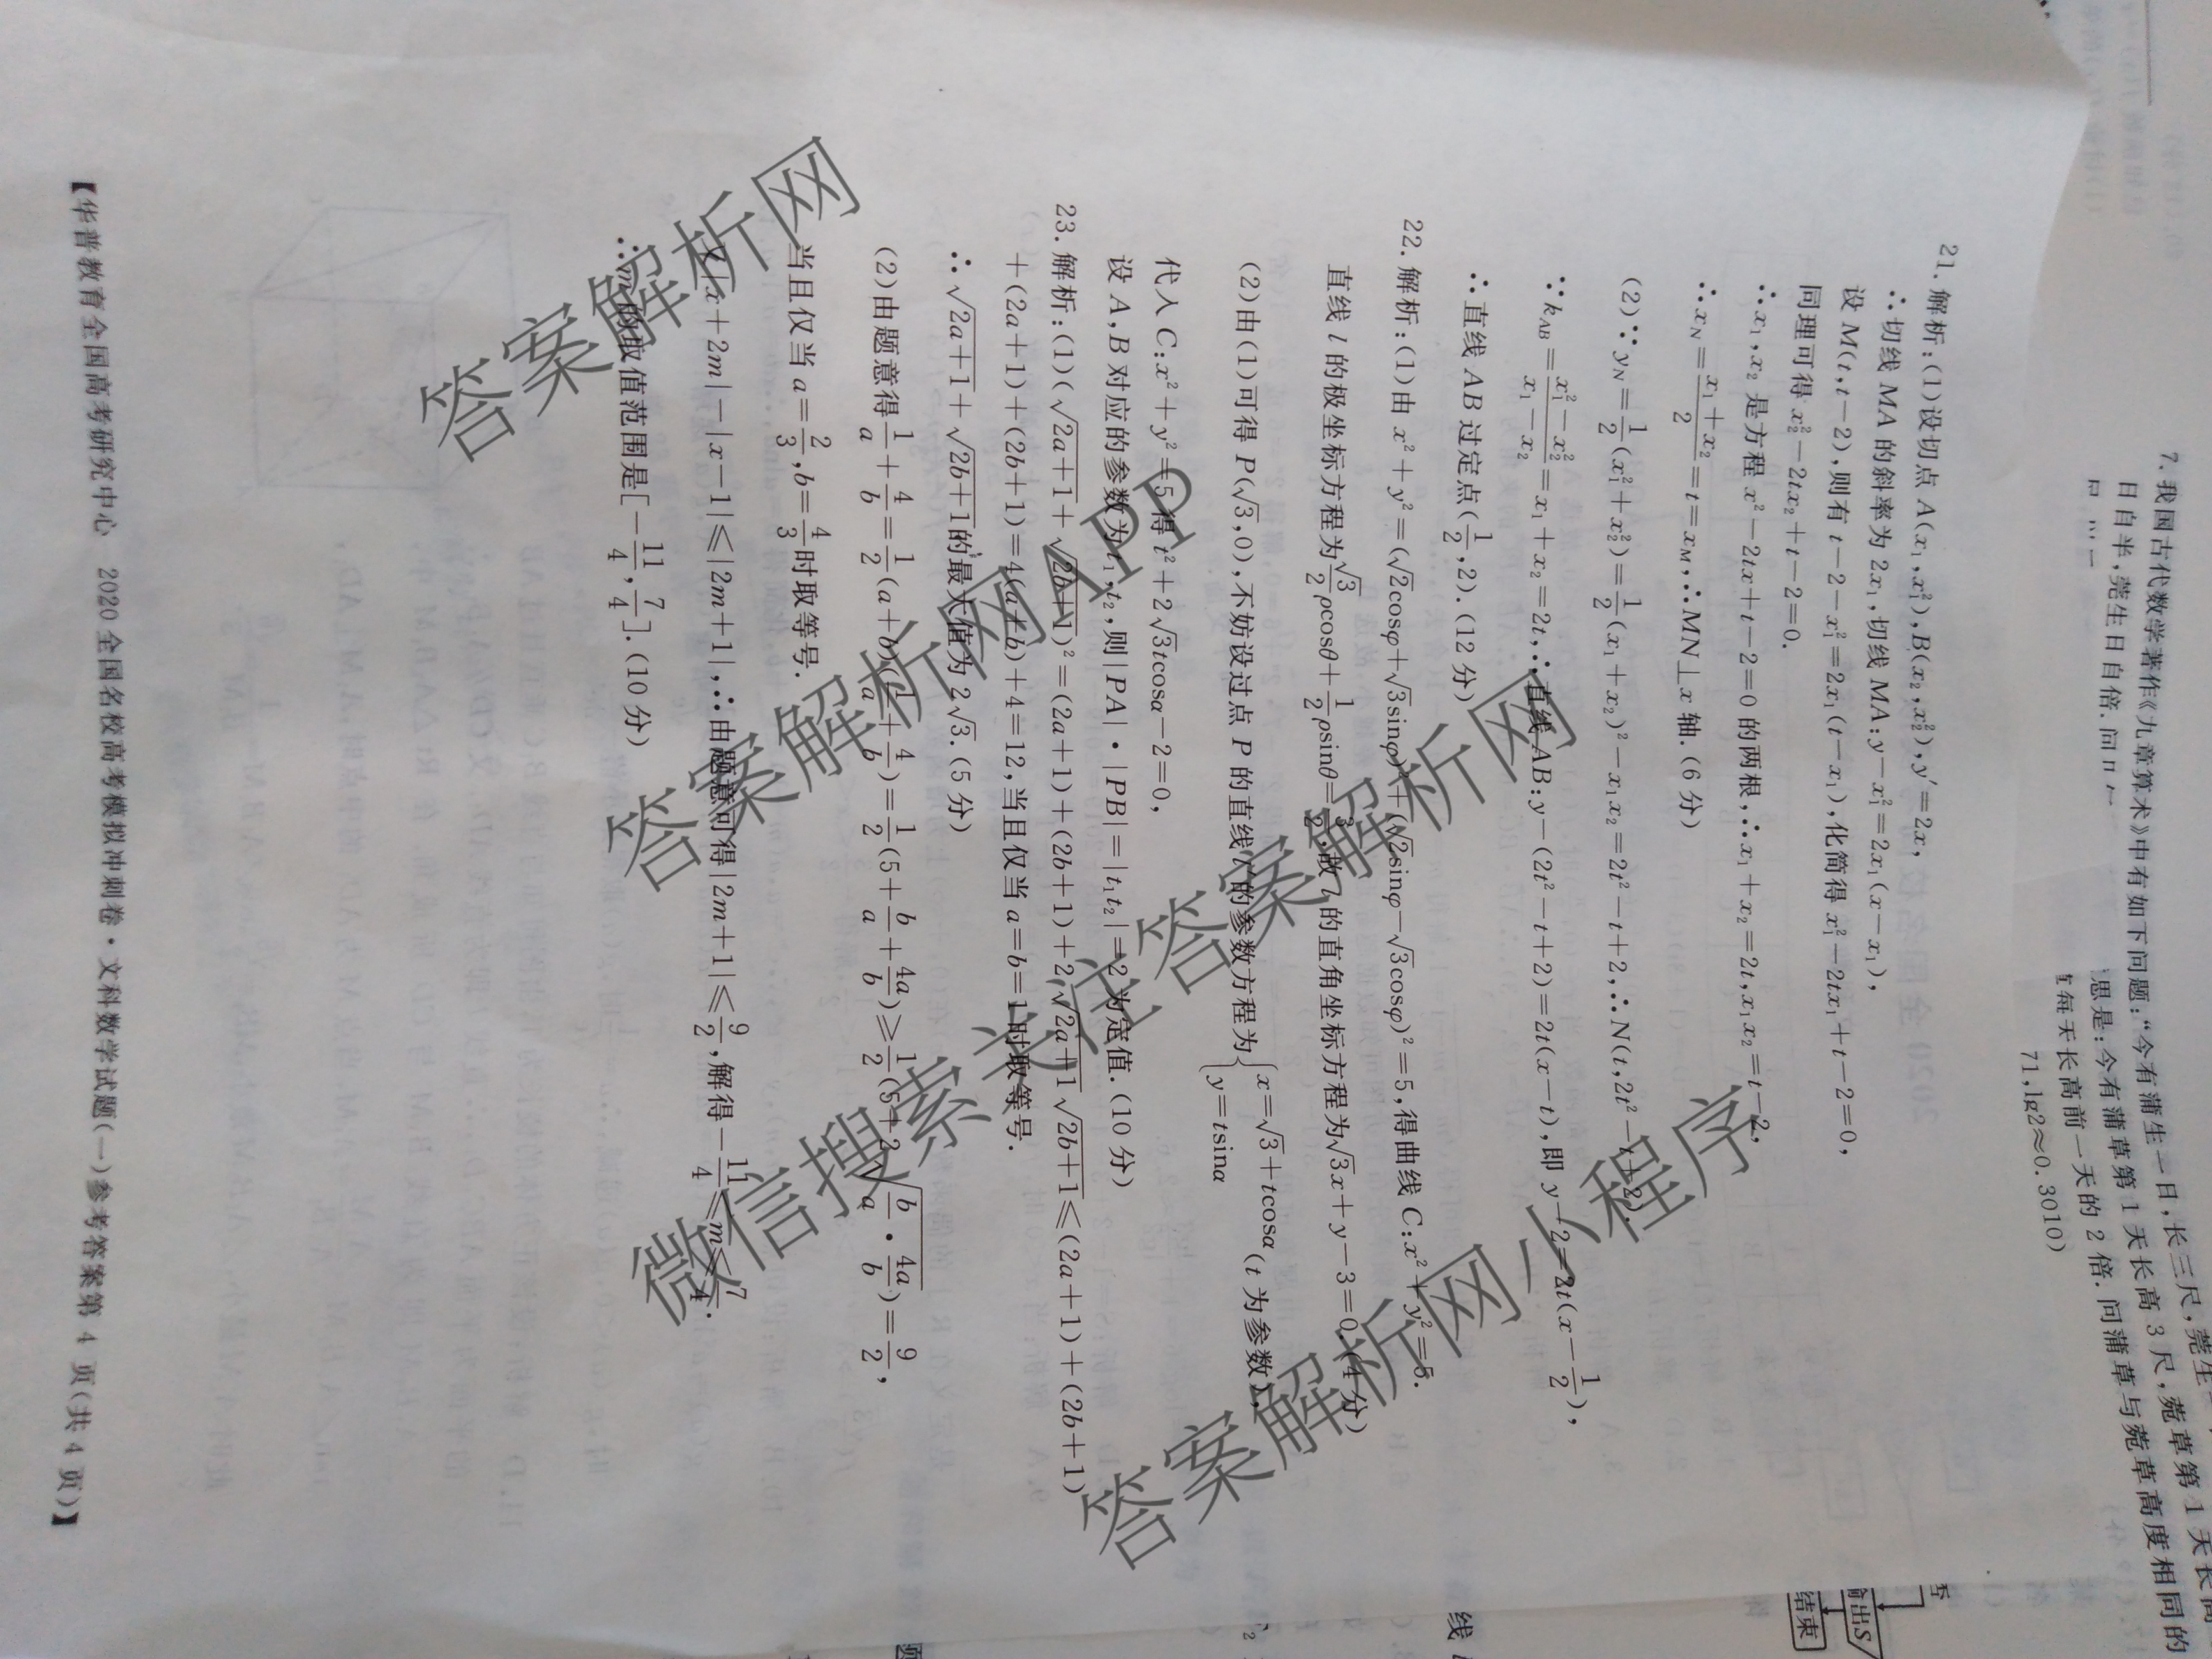 7. 我国古代数学著作《九章算术》中有如下问题:“今有蒲生一日,长三尺,莞生
日自半,莞生日自倍.问
思是:今有蒲草第1天长高3尺,菀草第1天长高
每天长高前一天的2倍.问蒲草与菀草高度相同的
71,lg2≈0.3010)
21. 解析:(1)设切点 A(x₁,x₁²),B(x₂,x₂²),y′=2x,
∴切线 MA 的斜率为 2x₁,切线 MA:y−x₁²=2x₁(x−x₁),
设 M(t,t−2),则有 t−2−x₁²=2x₁(t−x₁),化简得 x₁²−2tx₁+t−2=0,
同理可得 x₂²−2tx₂+t−2=0.
∴x₁,x₂ 是方程 x²−2tx+t−2=0 的两根,∴x₁+x₂=2t,x₁x₂=t−2,
∴x_N=(x₁+x₂)/2=t=x_M,∴MN⊥x 轴.(6分)
(2)∵y_N=1/2(x₁²+x₂²)=1/2(x₁+x₂)²−x₁x₂=2t²−t+2,∴N(t,2t²−t+2).
∵k_AB=(x₁²−x₂²)/(x₁−x₂)=x₁+x₂=2t,∴直线 AB:y−(2t²−t+2)=2t(x−t),即 y−2=2t(x−1/2),
∴直线 AB 过定点(1/2,2).(12分)
22. 解析:(1)由 x²+y²=(√2cosφ+√3sinφ)²+(√2sinφ−√3cosφ)²=5,得曲线 C:x²+y²=5.
直线 l 的极坐标方程为√3/2ρcosθ+1/2ρsinθ=3/2,故 l 的直角坐标方程为√3x+y−3=0.(4分)
(2)由(1)可得 P(√3,0),不妨设过点 P 的直线 l′的参数方程为{x=√3+tcosα y=tsinα (t 为参数),
代入 C:x²+y²=5得 t²+2√3tcosα−2=0,
设 A,B 对应的参数为 t₁,t₂,则|PA|·|PB|=|t₁t₂|=2 为定值.(10分)
23. 解析:(1)(√(2a+1)+√(2b+1))²=(2a+1)+(2b+1)+2√(2a+1)√(2b+1)≤(2a+1)+(2b+1)
+(2a+1)+(2b+1)=4(a+b)+4=12,当且仅当 a=b=1时取等号.
∴√(2a+1)+√(2b+1)的最大值为 2√3.(5分)
(2)由题意得1/a+4/b=1/2(a+b)(1/a+4/b)=1/2(5+b/a+4a/b)≥1/2(5+2√(b/a·4a/b))=9/2,
当且仅当 a=2/3,b=4/3时取等号.
又|x+2m|−|x−1|≤|2m+1|,∴由题意可得|2m+1|≤9/2,解得−11/4≤m≤7/4.
∴m的取值范围是[−11/4,7/4].(10分)
【华普教育全国高考研究中心 2020全国名校高考模拟冲刺卷·文科数学试题(一)参考答案第 4 页(共 4 页)】
答案解析网
答案解析网APP
微信搜索关注答案解析网
答案解析网小程序
否
输出S
结束
线